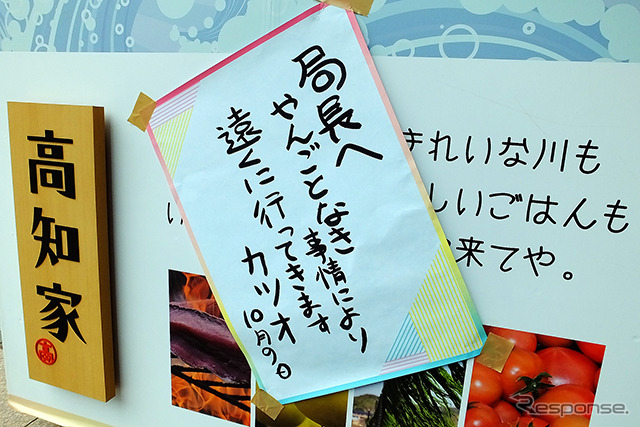 高知家
局長へ
やんごとなき事情により
遠くに行ってきます
カツオ
10月9日
きれいな川も
しいごはんも
来てや。
Response.